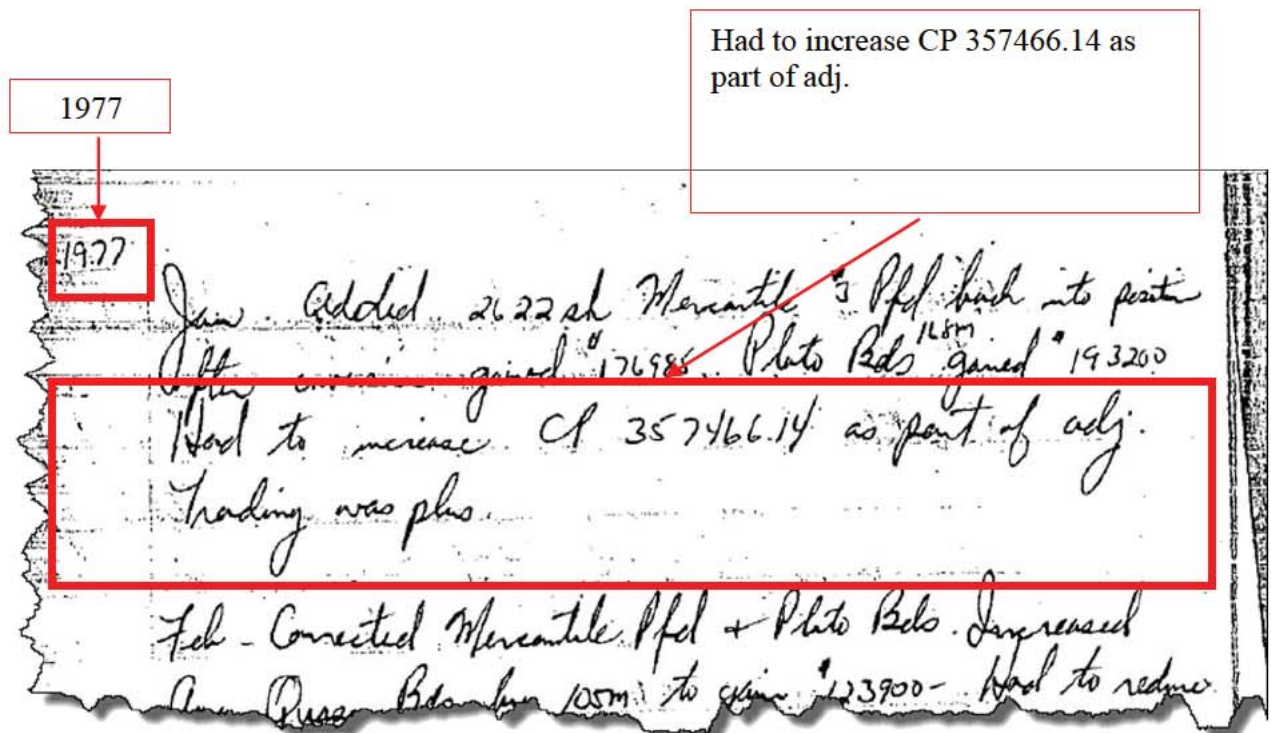 Had to increase CP 357466.14 as
part of adj.
1977
1977
Jan. Added 2622 sh Mercantile $ Pfd back into position
After gained $176985. Pluto Bds 168m gained $193200
Had to increase CP 357466.14 as part of adj.
Trading was plus.
Feb - Corrected Mercantile Pfd + Pluto Bds. Increased
Bds by 105m to gain $123900- Had to reduce